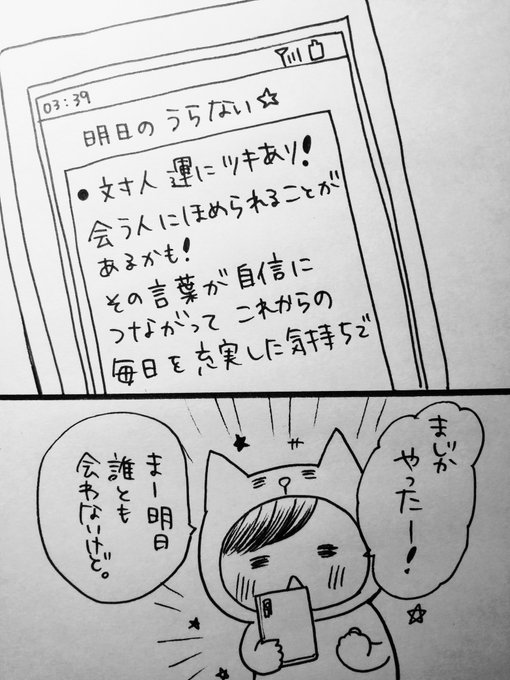 03:39
明日のうらない☆
●対人運にツキあり!
会う人にほめられることが
あるかも!
その言葉が自信に
つながって これからの
毎日を充実した気持ちで
まじか
やったー!
まー明日
誰とも
会わないけど。